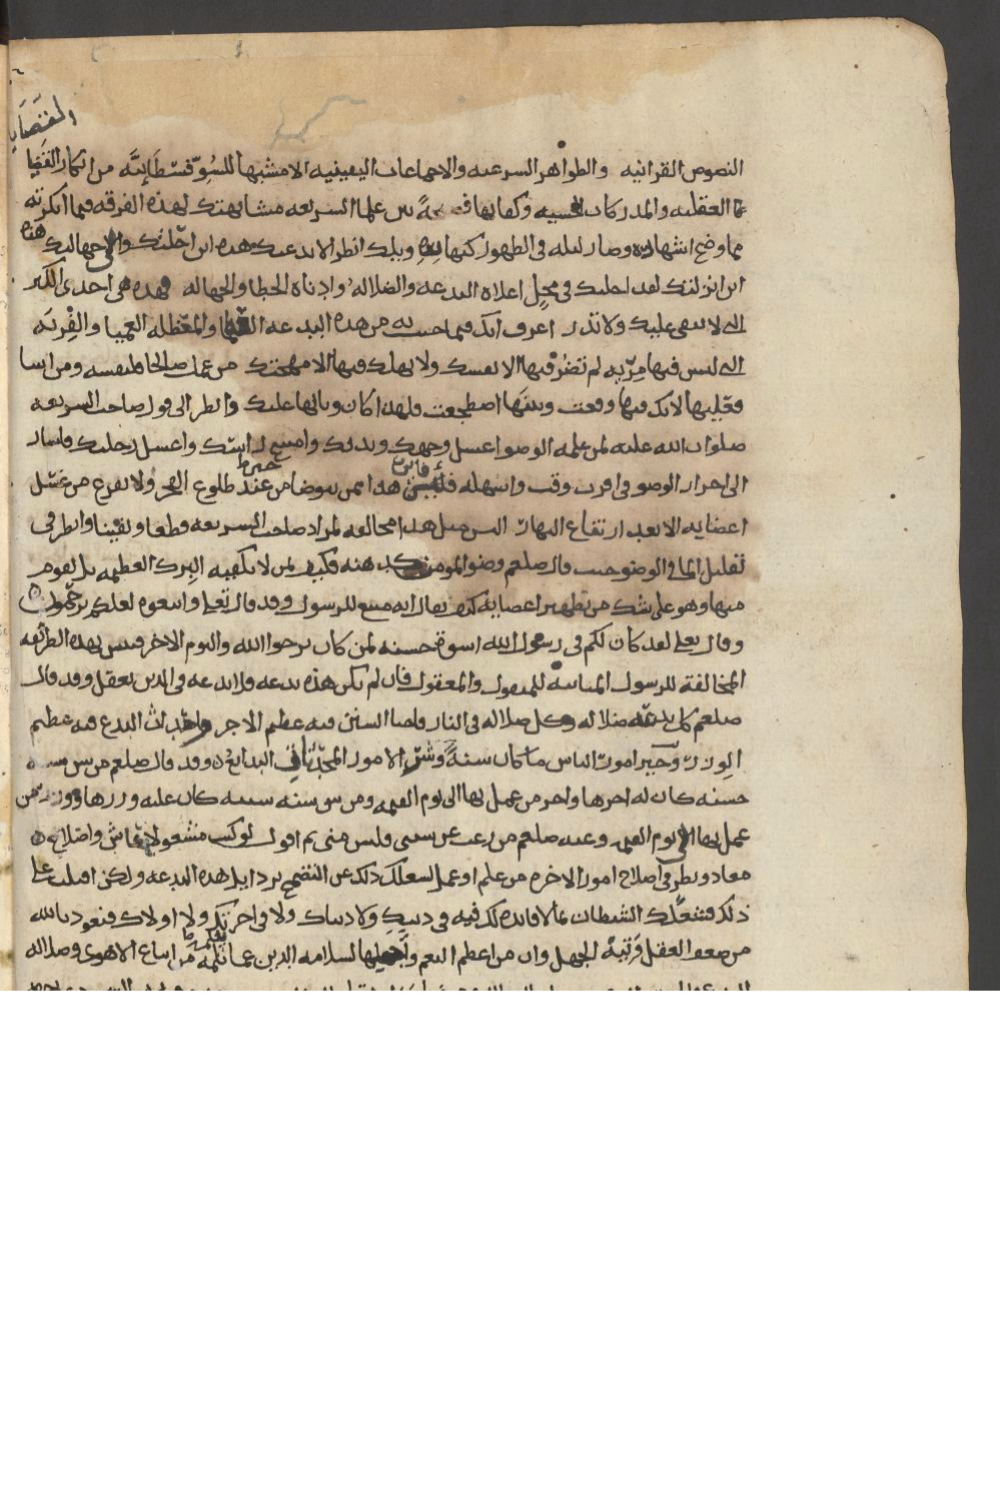 القضايا
النصوص القرانيه والظواهر الشرعيه والاجماعات اليقينيه الا مشبها للسوفسطائيه من انكار القضايا
العقليه والمدركات الحسيه وكفا بها بين علما الشريعه مشابهتك لهذه الفرقه فيما انكرته
مما وضح اشتهاره وصار ليله في الظهور كنهاره ويلك انظر الا بدعتك هذه اين احلتك والى جهالتك هذه
اين انزلتك لقد احلتك في محل اعلاه البدعه والضلاله وادناه الخطا والجهاله فهذه هي احدى الكبر
التي لا تبقى عليك ولا تذر اعرف انك فيما احسب من هذه البدعه والمعظله العميا والفريه
التي ليس فيها مريه لم تضر فيها الا نفسك ولا تهلك فيها الا مهجتك من عمل صالحا فلنفسه ومن اسا
فعليها لانك فيها وقعت وبينها اضطجعت فلهذا كان وبالها عليك وانظر الى قول صاحب الشريعه
صلوات الله عليه لمن علمه الوضو اغسل وجهك ويديك وامسح راسك واغسل رجليك فاشار
الى احراز الوضو في اقرب وقت واسهله فاين هذا ممن يتوضا من عند طلوع الفجر ولا يفرغ من غسل
اعضايه الا بعد ارتفاع النهار اليس مثل هذا مخالفه لمراد صاحب الشريعه قطعا ويقينا وانظر في
تقليل الما في الوضو حيث قال صلعم وضو المومن كدهنه فكيف لمن لا تكفيه البرك العظيمه بل يقوم
منها وهو على شك من تطهير اعضايه كيف يقال انه متبع للرسول وقد قال تعالى واتبعوه لعلكم ترحمون
وقال تعالى لقد كان لكم في رسول الله اسوة حسنه لمن كان يرجوا الله واليوم الاخر فليس بهذه الطريقه
المخالفة للرسول المباينه للمنقول والمعقول فان لم تكن هذه بدعه فلا بدعه في الدين تعقل وقد قال
صلعم كل بدعه ضلاله وكل ضلاله في النار فاحيا السنن فيه عظيم الاجر واحداث البدع فيه عظيم
الوزر وخير امور الناس ما كان سنة وشر الامور المحدثات البدايع وقد قال صلعم من سن سنه
حسنه كان له اجرها واجر من عمل بها الى يوم القيمه ومن سن سنه سيئه كان عليه وزرها ووزر من
عمل بها الى يوم القيمه وعنه صلعم من رغب عن سنتي فليس مني ثم اقول لو كنت مشغولا بمعاش واصلاح
معاد ونظر في اصلاح امور الاخره من علم او عمل لشغلك ذلك عن التضمخ برذايل هذه البدعه ولكن اقبلت على
ذلك فشغلك الشيطان بما لا فايده لك فيه في دينك ولا دنياك ولا في اخرتك ولا اولاك فنعوذ بالله
من ضعف العقل وتيه الجهل وان من اعظم النعم واجملها لسلامه الدين عما يكلمه من اتباع الاهوى وضلاله